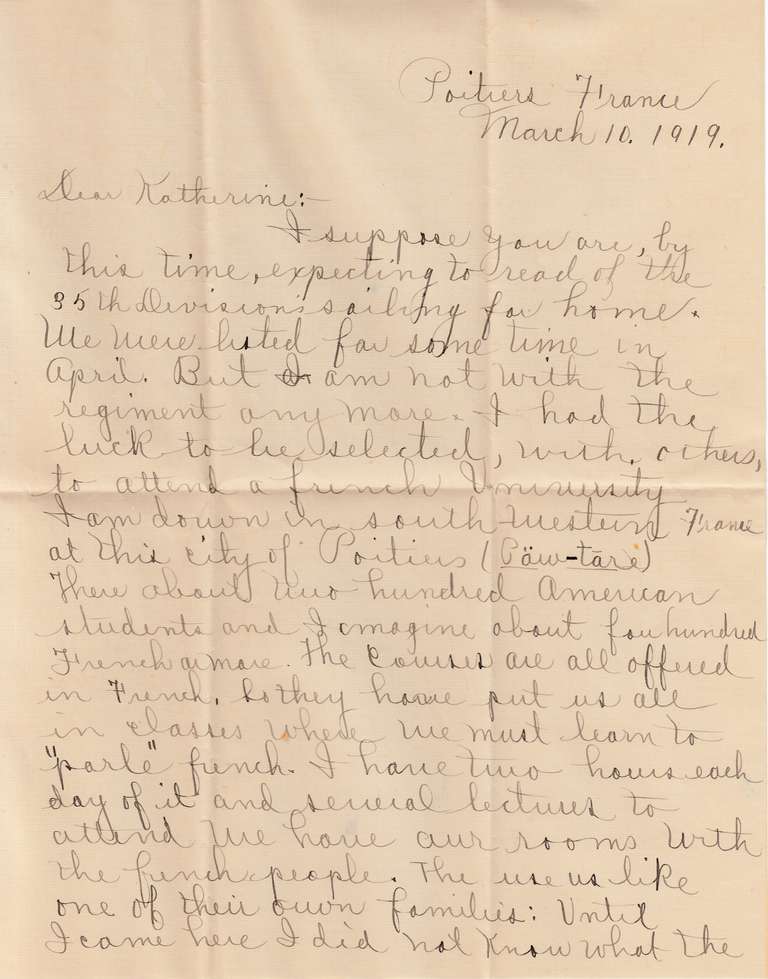 Poitiers France
March 10. 1919.
Dear Katherine:-
I suppose you are, by
this time, expecting to read of the
35th Division's sailing for home.
We were listed for some time in
April. But I am not with the
regiment any more. I had the
luck to be selected, with others,
to attend a french University
I am down in south-western France
at this city of Poitiers (Päw-tāre)
There about two hundred American
students and I imagine about four hundred
French or more. The courses are all offered
in French. So they have put us all
in classes where we must learn to
"parle" french. I have two hours each
day of it and several lectures to
attend We have our rooms with
the french people. The use us like
one of their own families: Until
I came here I did not know what the